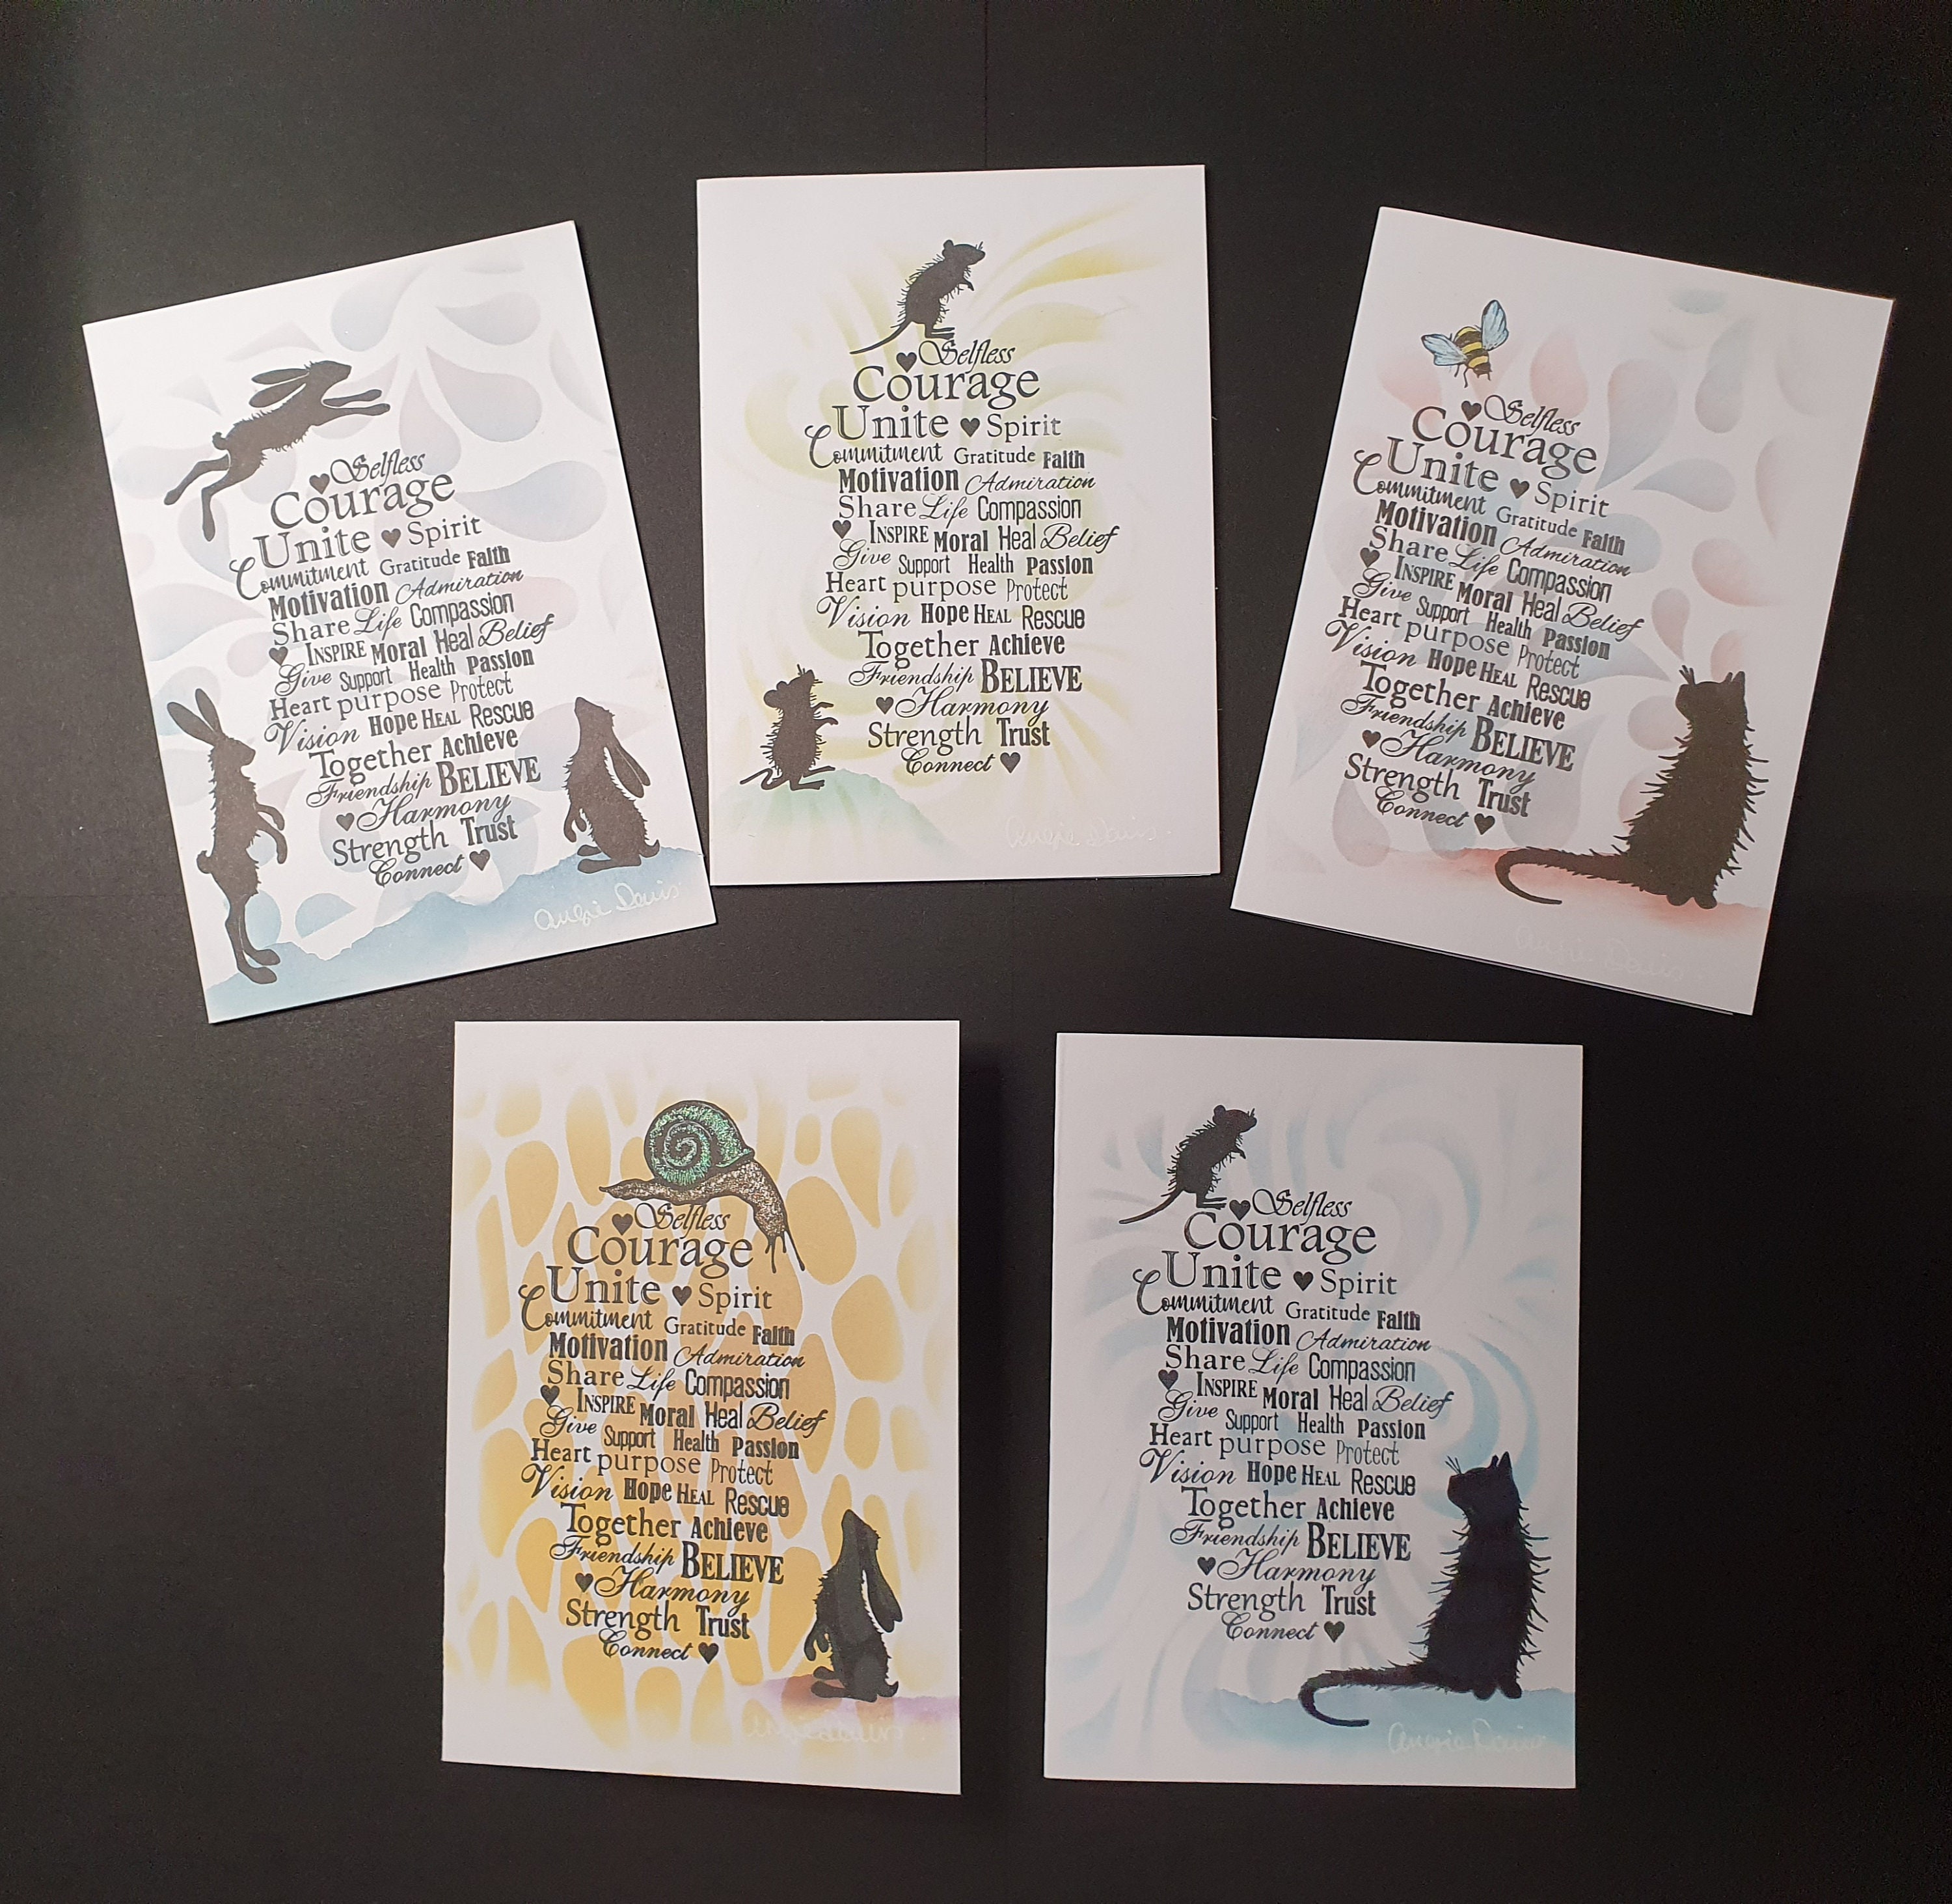 Selfless
Courage
Unite Spirit
Commitment Gratitude Faith
Motivation Admiration
Share Life Compassion
INSPIRE Moral Heal Belief
Give Support Health Passion
Heart purpose Protect
Vision Hope HEAL Rescue
Together Achieve
Friendship BELIEVE
Harmony
Strength Trust
Connect
Angie Davis
Selfless
Courage
Unite Spirit
Commitment Gratitude Faith
Motivation Admiration
Share Life Compassion
INSPIRE Moral Heal Belief
Give Support Health Passion
Heart purpose Protect
Vision Hope HEAL Rescue
Together Achieve
Friendship BELIEVE
Harmony
Strength Trust
Connect
Angie Davis
Selfless
Courage
Unite Spirit
Commitment Gratitude Faith
Motivation Admiration
Share Life Compassion
INSPIRE Moral Heal Belief
Give Support Health Passion
Heart purpose Protect
Vision Hope HEAL Rescue
Together Achieve
Friendship BELIEVE
Harmony
Strength Trust
Connect
Angie Davis
Selfless
Courage
Unite Spirit
Commitment Gratitude Faith
Motivation Admiration
Share Life Compassion
INSPIRE Moral Heal Belief
Give Support Health Passion
Heart purpose Protect
Vision Hope HEAL Rescue
Together Achieve
Friendship BELIEVE
Harmony
Strength Trust
Connect
Angie Davis
Selfless
Courage
Unite Spirit
Commitment Gratitude Faith
Motivation Admiration
Share Life Compassion
INSPIRE Moral Heal Belief
Give Support Health Passion
Heart purpose Protect
Vision Hope HEAL Rescue
Together Achieve
Friendship BELIEVE
Harmony
Strength Trust
Connect
Angie Davis